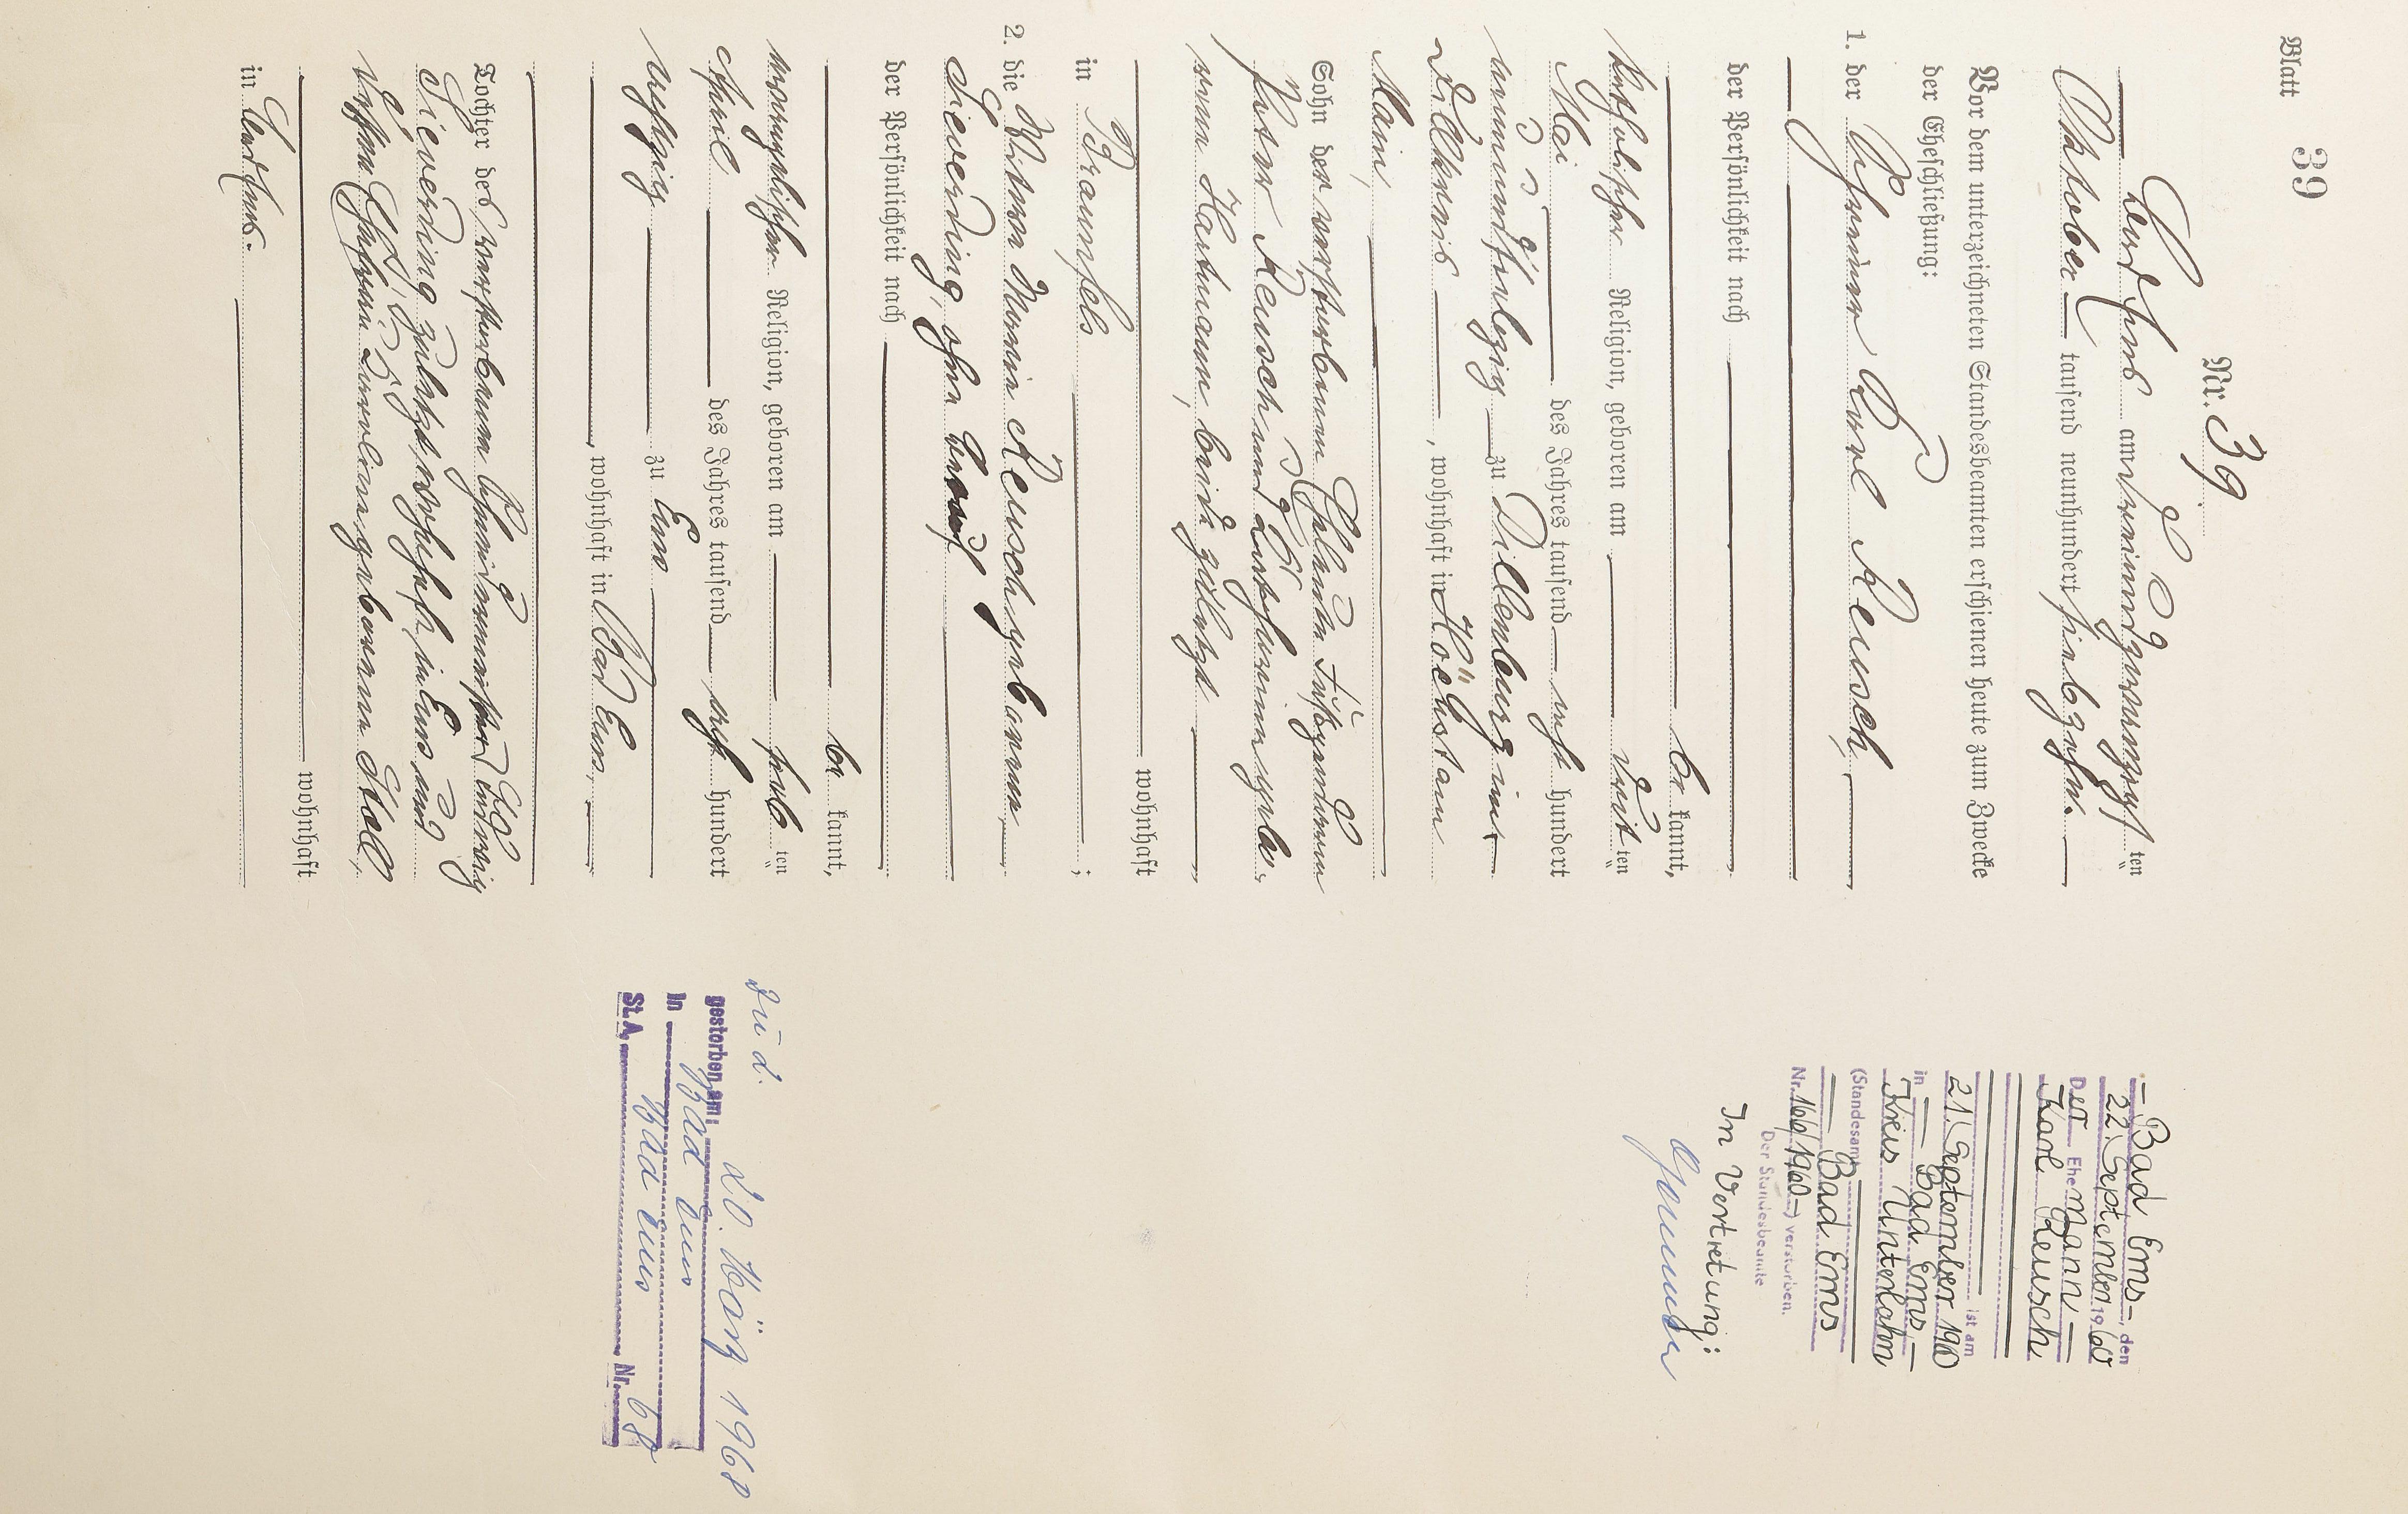 Blatt 39
Nr. 39
Bad Ems am dreiundzwanzigsten
Oktober tausend neunhundert siebzehn.
Vor dem unterzeichneten Standesbeamten erschienen heute zum Zwecke
der Eheschließung:
1. der Schreiner Karl Reusch,
der Persönlichkeit nach
be kannt,
katholischer Religion, geboren am dritten
Mai des Jahres tausend acht hundert
neunundsiebzig zu Dillenburg im
Dillkreis, wohnhaft in Höchst am
Main,
Sohn der verstorbenen Eheleute
Peter Reusch und geborenen
Hartmann, beide zuletzt
wohnhaft
in Braunfels;
2. die Witwe Reusch geborene
Sieverding, ohne Beruf
der Persönlichkeit nach
be kannt,
evangelischer Religion, geboren am siebten
April des Jahres tausend acht hundert
achtzig zu Ems
, wohnhaft in Bad Ems,
Tochter des verstorbenen Schneidermeisters Ludwig
Sieverding zuletzt wohnhaft in Ems und
dessen Ehefrau Karoline geborene Stoll,
wohnhaft
in Bad Ems.
Bad Ems, den
22. September 1960
Der Ehemann
Karl Reusch
ist am
21. September 1960
in Bad Ems,
Kreis Unterlahn
(Standesamt
Bad Ems
Nr. 166/1960) verstorben.
Der Standesbeamte
In Vertretung:
zu 2.
gestorben am: 20. März 1968
in Bad Ems
St.A. Bad Ems Nr. 68